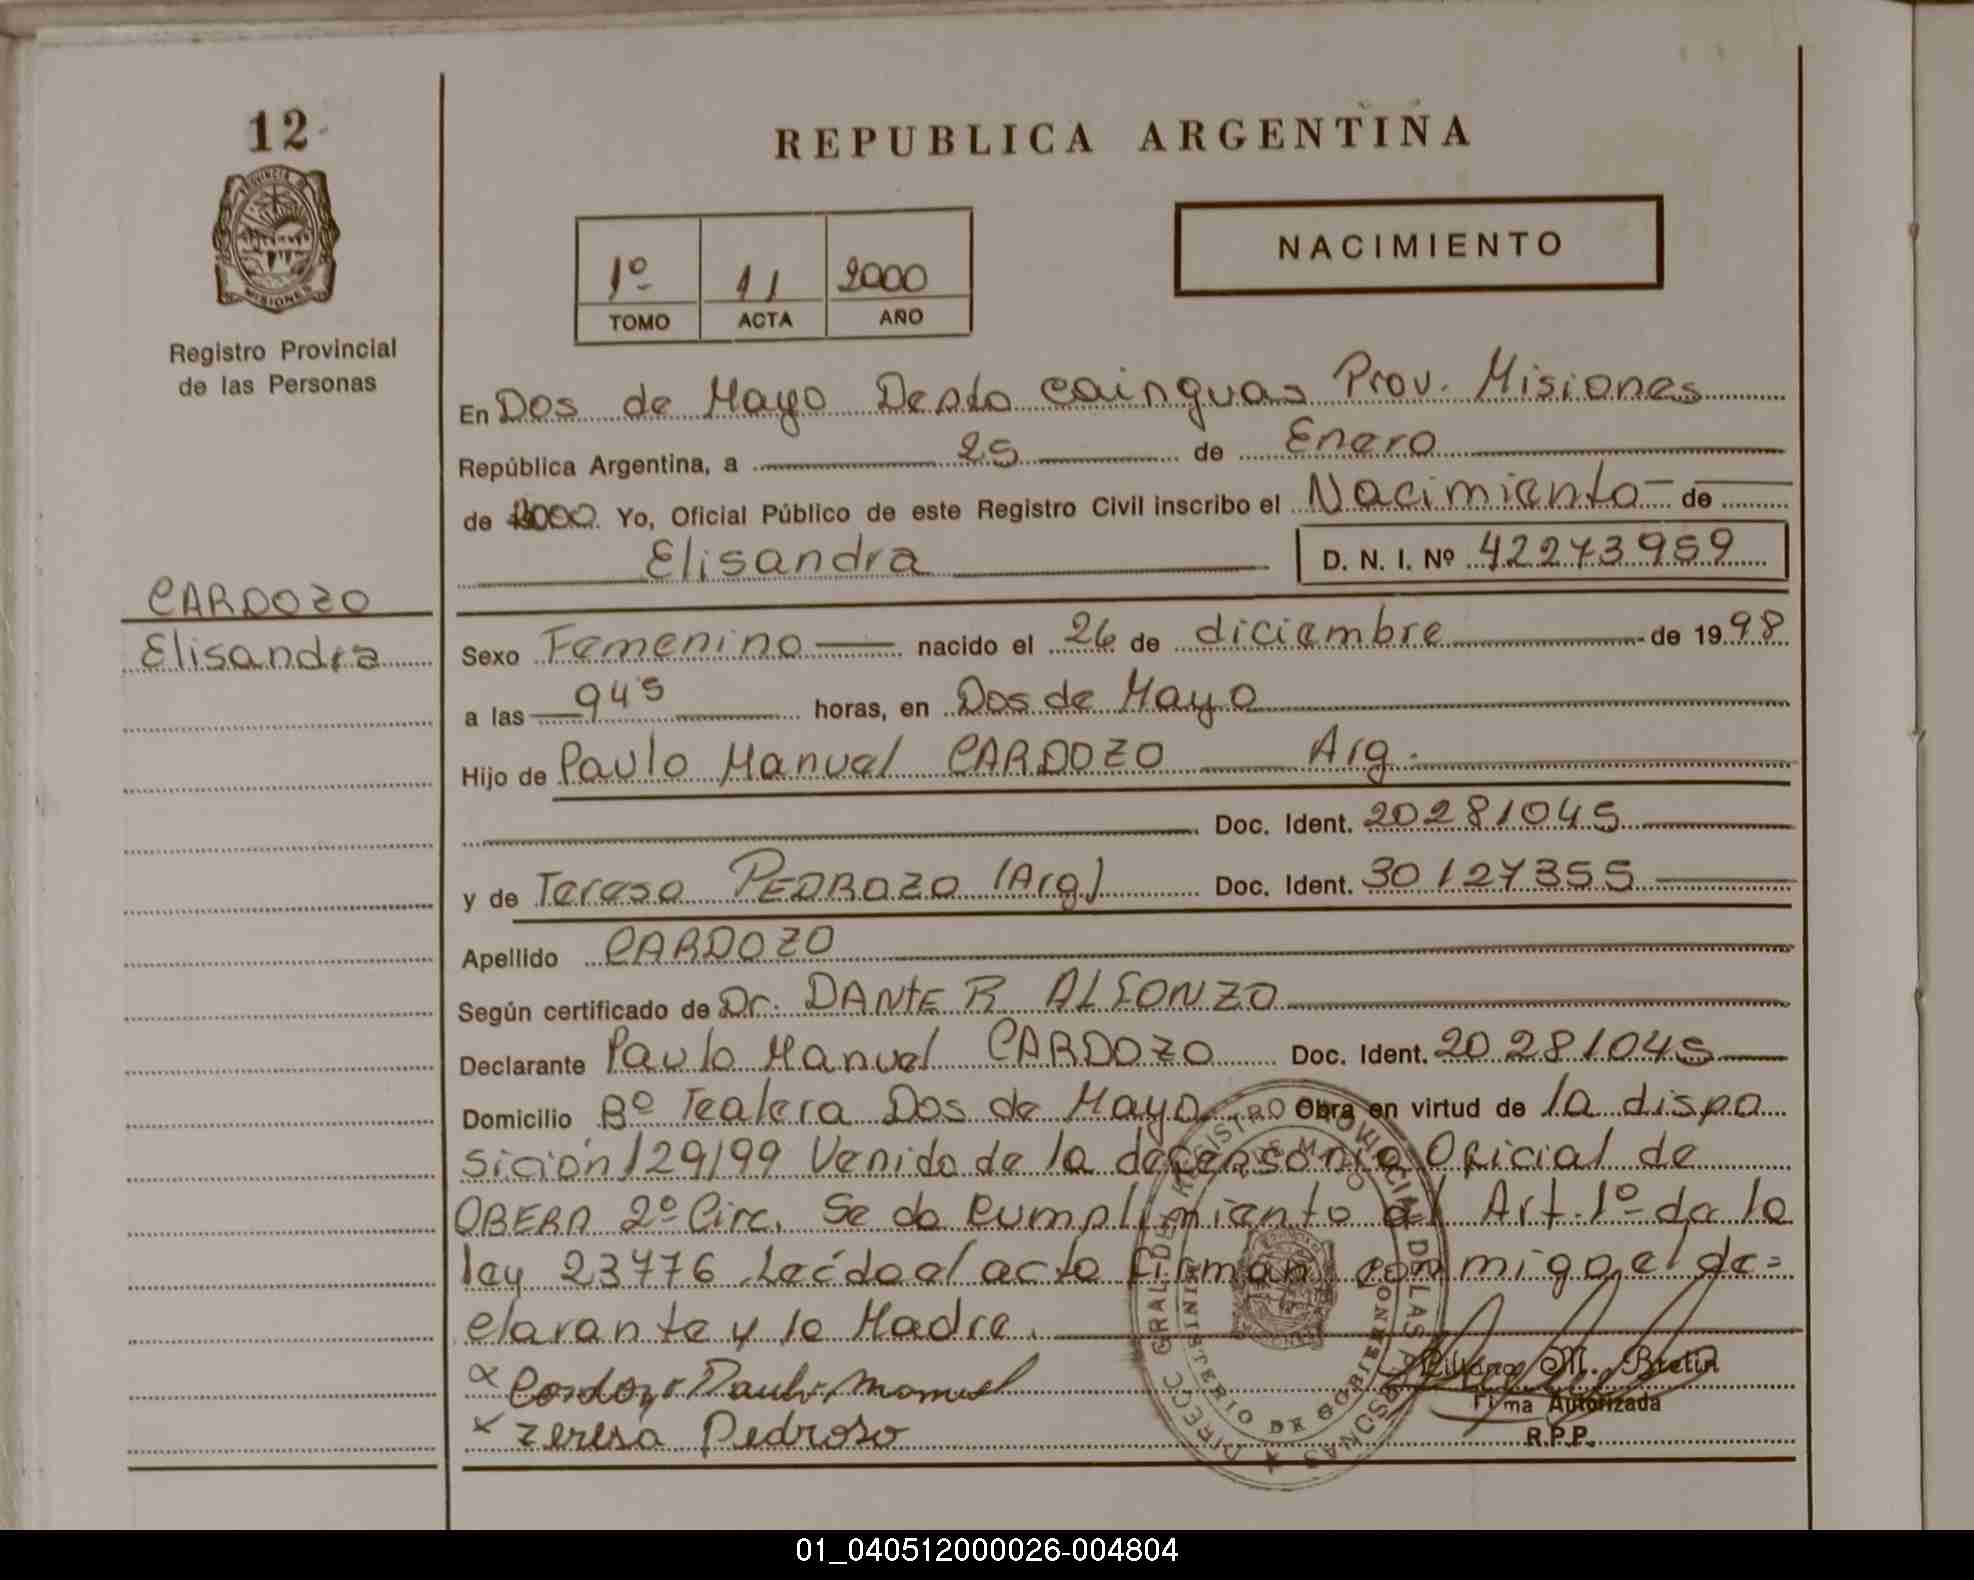 12
REPUBLICA ARGENTINA
PROVINCIA DE
MISIONES
Registro Provincial
de las Personas
NACIMIENTO
1º 11 2000
TOMO ACTA AÑO
En Dos de Mayo Depto Cainguas Prov. Misiones
República Argentina, a 25 de Enero
de 2000 Yo, Oficial Público de este Registro Civil inscribo el Nacimiento de
Elisandra D. N. I. Nº 42273959
CARDOZO
Elisandra
Sexo Femenino nacido el 26 de diciembre de 1998
a las 945 horas, en Dos de Mayo
Hijo de Paulo Manuel CARDOZO Arg.
Doc. Ident. 20281045
y de Teresa PEDROZO (Arg) Doc. Ident. 30127355
Apellido CARDOZO
Según certificado de Dr. DANTE R ALFONZO
Declarante Paulo Manuel CARDOZO Doc. Ident. 20281045
Domicilio Bº Tealera Dos de Mayo Obra en virtud de la dispo
sición 129/99 Venido de la defensoria Oficial de
OBERA 2º Circ. Se da Cumplimiento al Art. 1º de la
ley 23776 Leído el acto firman conmigo el de=
clarante y la Madre.
x Cardozo Paulo Manuel
x Teresa Pedroso
Liliana M. Bretin
Firma Autorizada
R.P.P.
DIRECC. GRAL. DE REGISTRO PROVINCIAL DE LAS PERSONAS
MINISTERIO DE GOBIERNO
01_040512000026-004804